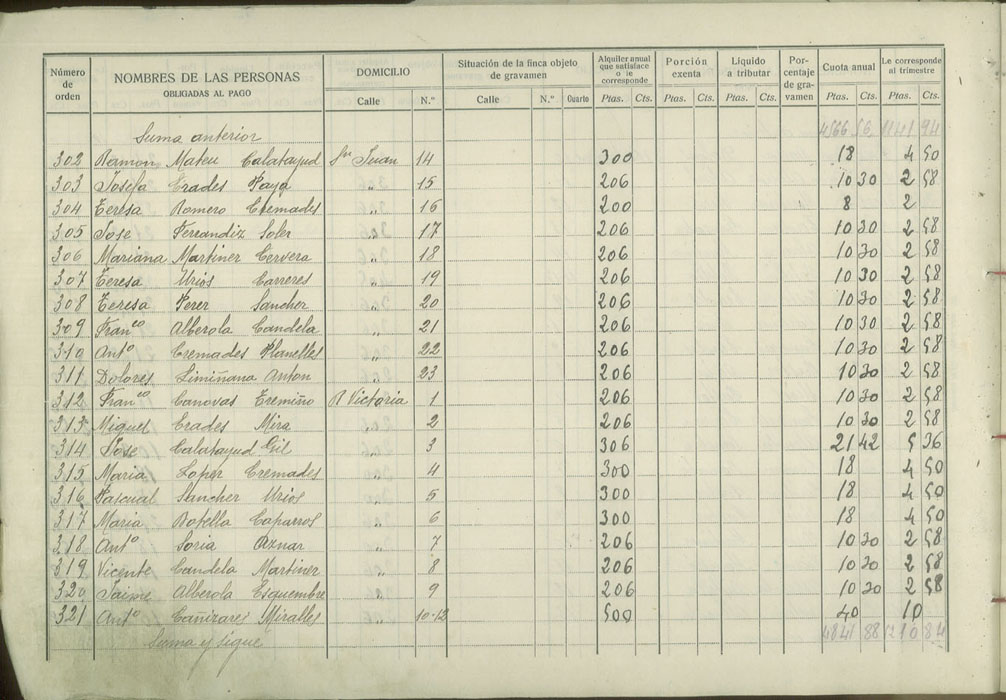 Número de orden NOMBRES DE LAS PERSONAS OBLIGADAS AL PAGO DOMICILIO Situación de la finca objeto de gravamen Alquiler anual que satisface o le corresponde Porción exenta Líquido a tributar Porcentaje de gravamen Cuota anual Le corresponde al trimestre
Calle N.º Calle N.º Cuarto Ptas. Cts. Ptas. Cts. Ptas. Cts. Ptas. Cts. Ptas. Cts.
Suma anterior 4566 56 1141 94
302 Ramon Mateu Calatayud Sn Juan 14 300 18 4 50
303 Josefa Crades Paya " 15 206 10 30 2 58
304 Teresa Romero Cremades " 16 200 8 2
305 Jose Ferrandiz Soler " 17 206 10 30 2 58
306 Mariana Martinez Cervera " 18 206 10 30 2 58
307 Teresa Urios Carreres " 19 206 10 30 2 58
308 Teresa Perez Sanchez " 20 206 10 30 2 58
309 Franco Alberola Candela " 21 206 10 30 2 58
310 Anto Cremades Planelles " 22 206 10 30 2 58
311 Dolores Limiñana Anton " 23 206 10 30 2 58
312 Franco Canovas Tremiño R Victoria 1 206 10 30 2 58
313 Miguel Crades Mira " 2 206 10 30 2 58
314 Jose Calatayud Gil " 3 306 21 42 5 36
315 Maria Lopez Cremades " 4 300 18 4 50
316 Pascual Sanchez Urios " 5 300 18 4 50
317 Maria Botella Caparros " 6 300 18 4 50
318 Anto Soria Aznar " 7 206 10 30 2 58
319 Vicente Candela Martinez " 8 206 10 30 2 58
320 Jaime Alberola Esquembre " 9 206 10 30 2 58
321 Anto Cañizares Miralles 10-12 500 40 10
Suma y sigue 4841 88 1210 84